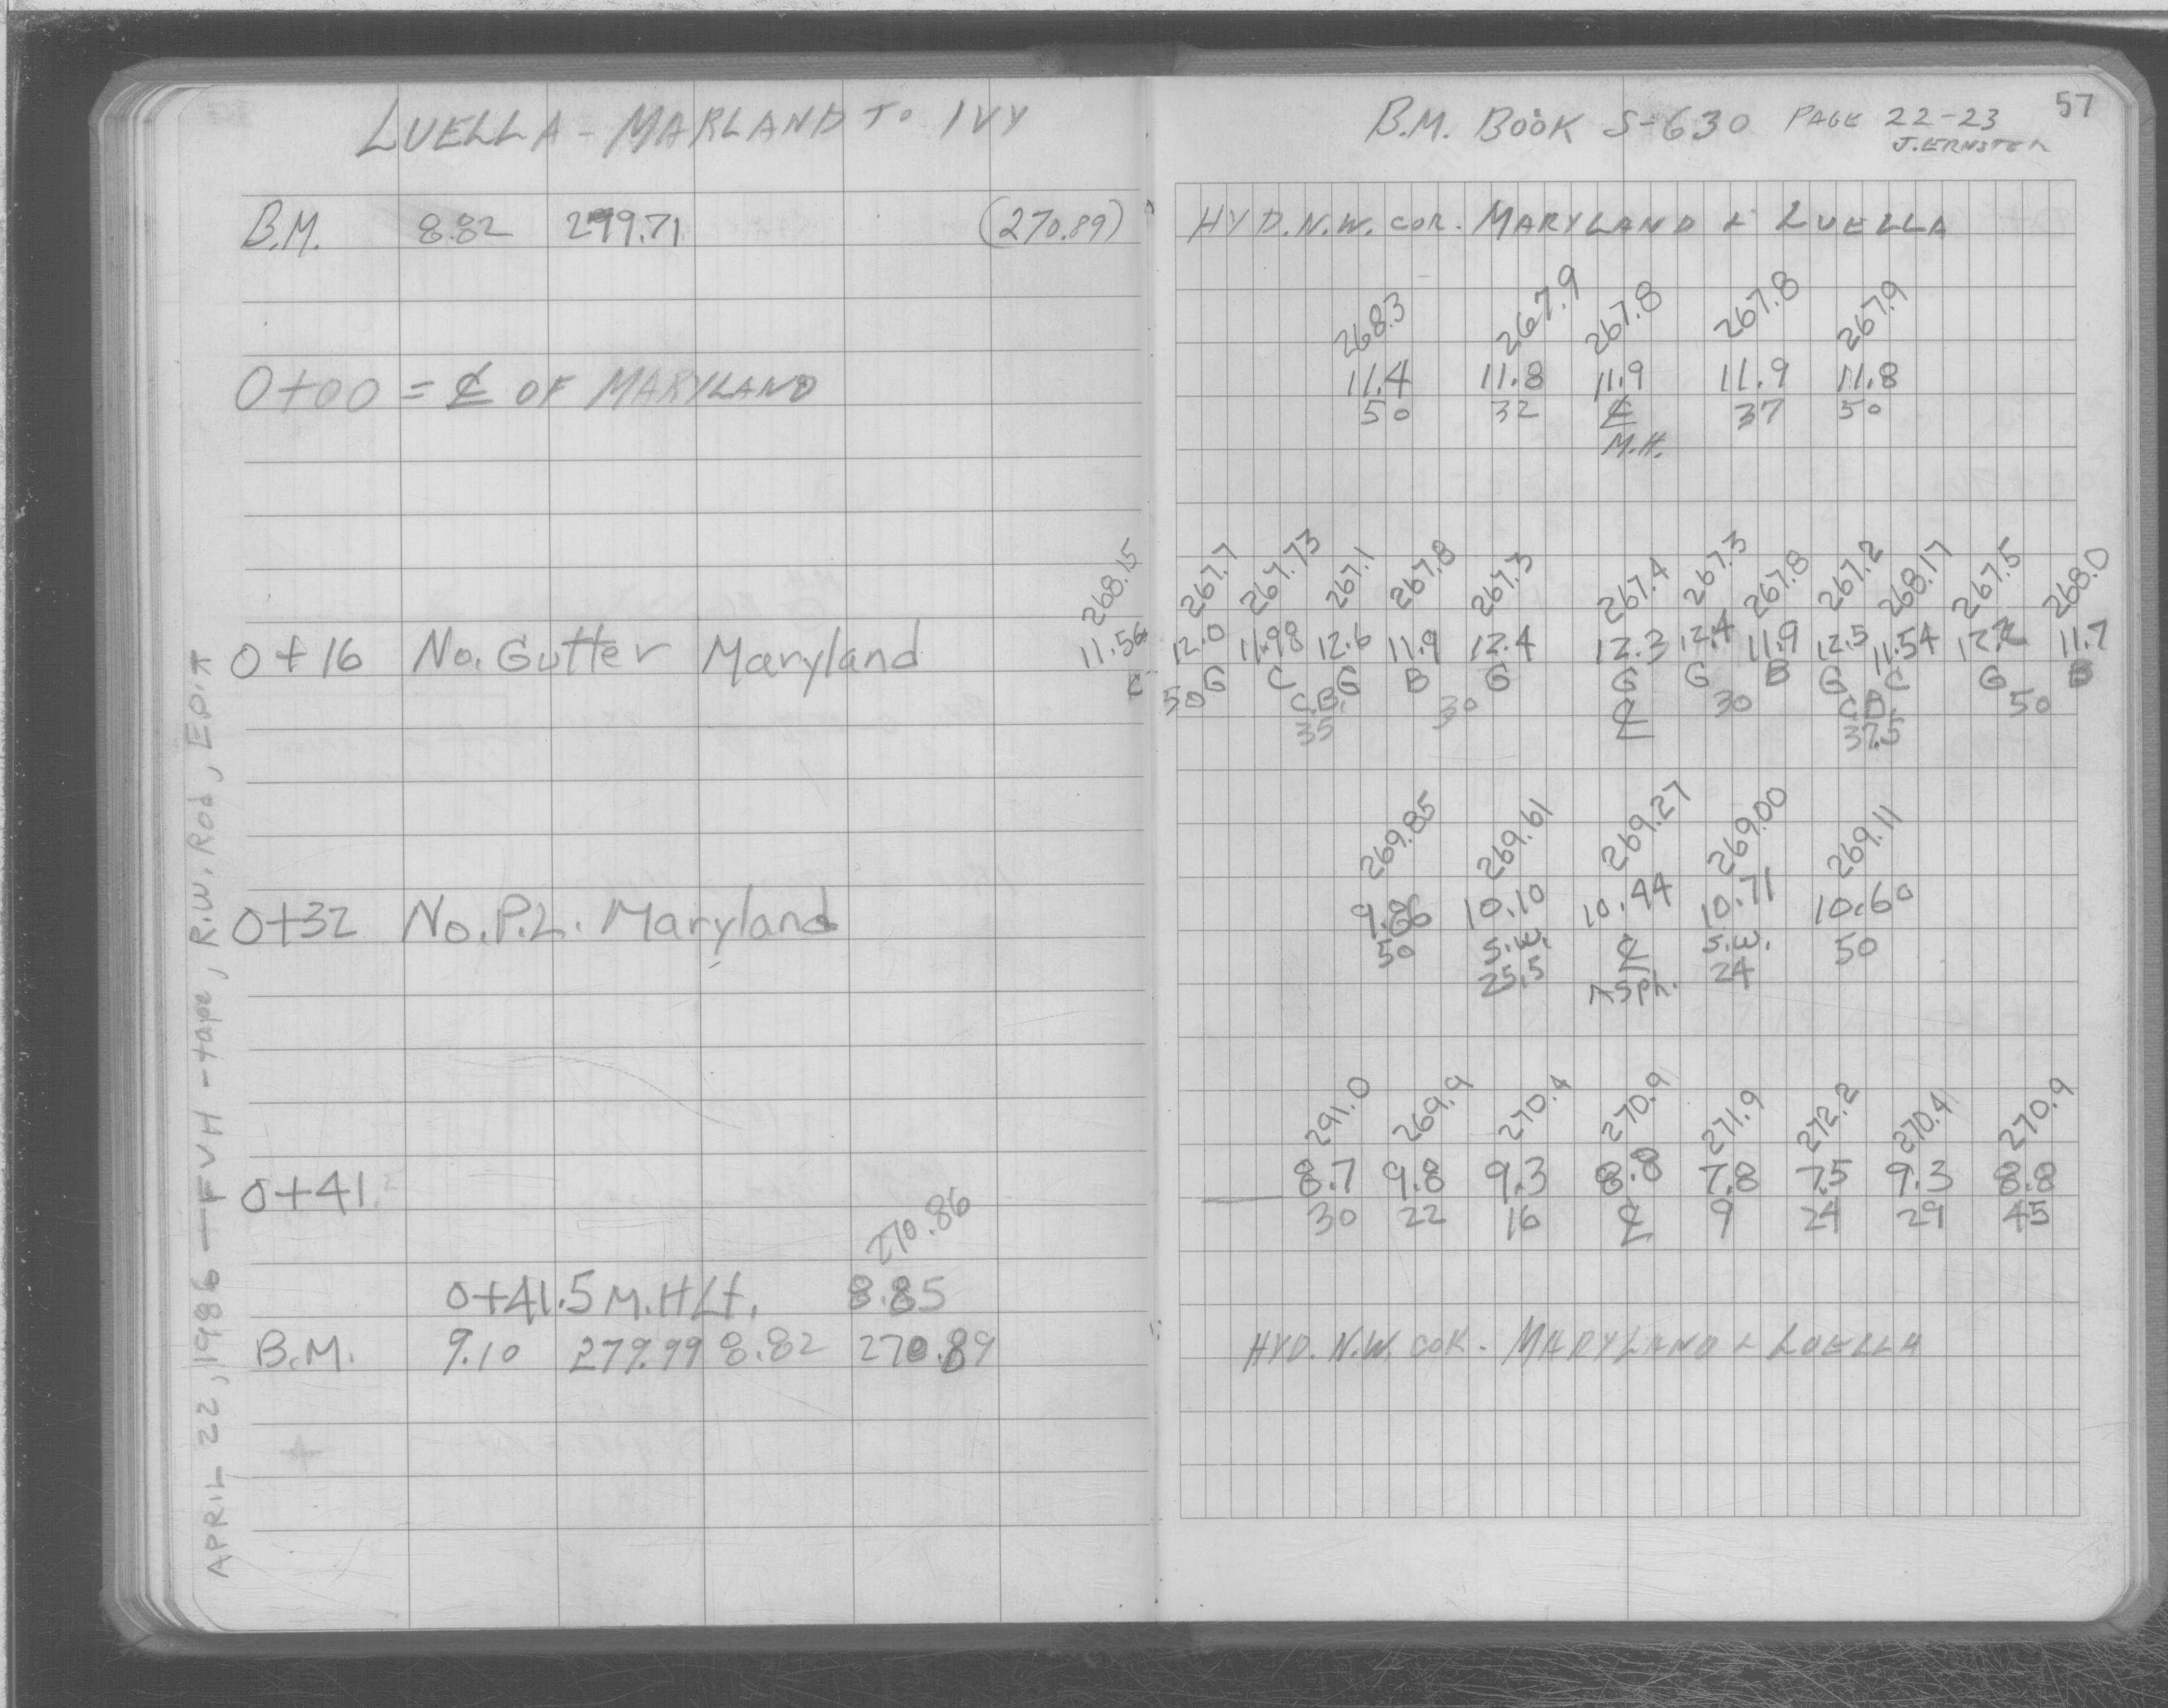 LUELLA - MARLAND TO IVY
B.M. 8.82 299.71 (270.89)
0+00 = ℄ OF MARYLAND
268.15
0+16 No. Gutter Maryland 11.56
C
0+32 No. P.L. Maryland
0+41
270.86
0+41.5 M.H Lt. 8.85
B.M. 9.10 279.99 8.82 270.89
APRIL 22, 1986 - FVH - tape, R.W. Rod,
57
B.M. BOOK S-630 PAGE 22-23
J. ERNSTER
HYD. N.W. COR. MARYLAND & LUELLA
268.3 267.9 267.8 267.8 267.9
11.4 11.8 11.9 11.9 11.8
50 32 ℄ 37 50
M.H.
267.7 267.73 267.1 267.8 267.3 267.4 267.3 267.8 267.2 268.17 267.5 268.0
12.0 11.98 12.6 11.9 12.4 12.3 12.4 11.9 12.5 11.54 12.2 11.7
G C G B G G G B G C G B
50 C.B. 30 ℄ 30 C.B. 50
35 37.5
269.85 269.61 269.27 269.00 269.11
9.86 10.10 10.44 10.71 10.60
50 S.W. ℄ S.W. 50
25.5 Asph. 24
291.0 269.9 270.4 270.9 271.9 272.2 270.4 270.9
8.7 9.8 9.3 8.8 7.8 7.5 9.3 8.8
30 22 16 ℄ 9 24 29 45
HYD. N.W. COR. MARYLAND & LUELLA